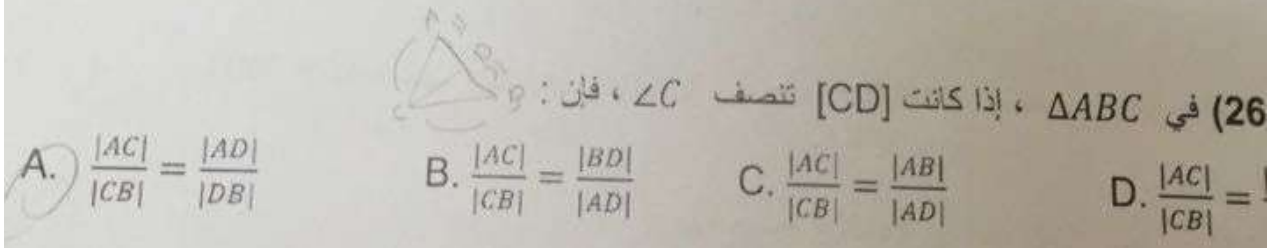 26) في ΔABC ، إذا كانت [CD] تنصف ∠C ، فإن :
A. |AC|/|CB| = |AD|/|DB| B. |AC|/|CB| = |BD|/|AD| C. |AC|/|CB| = |AB|/|AD| D. |AC|/|CB| =